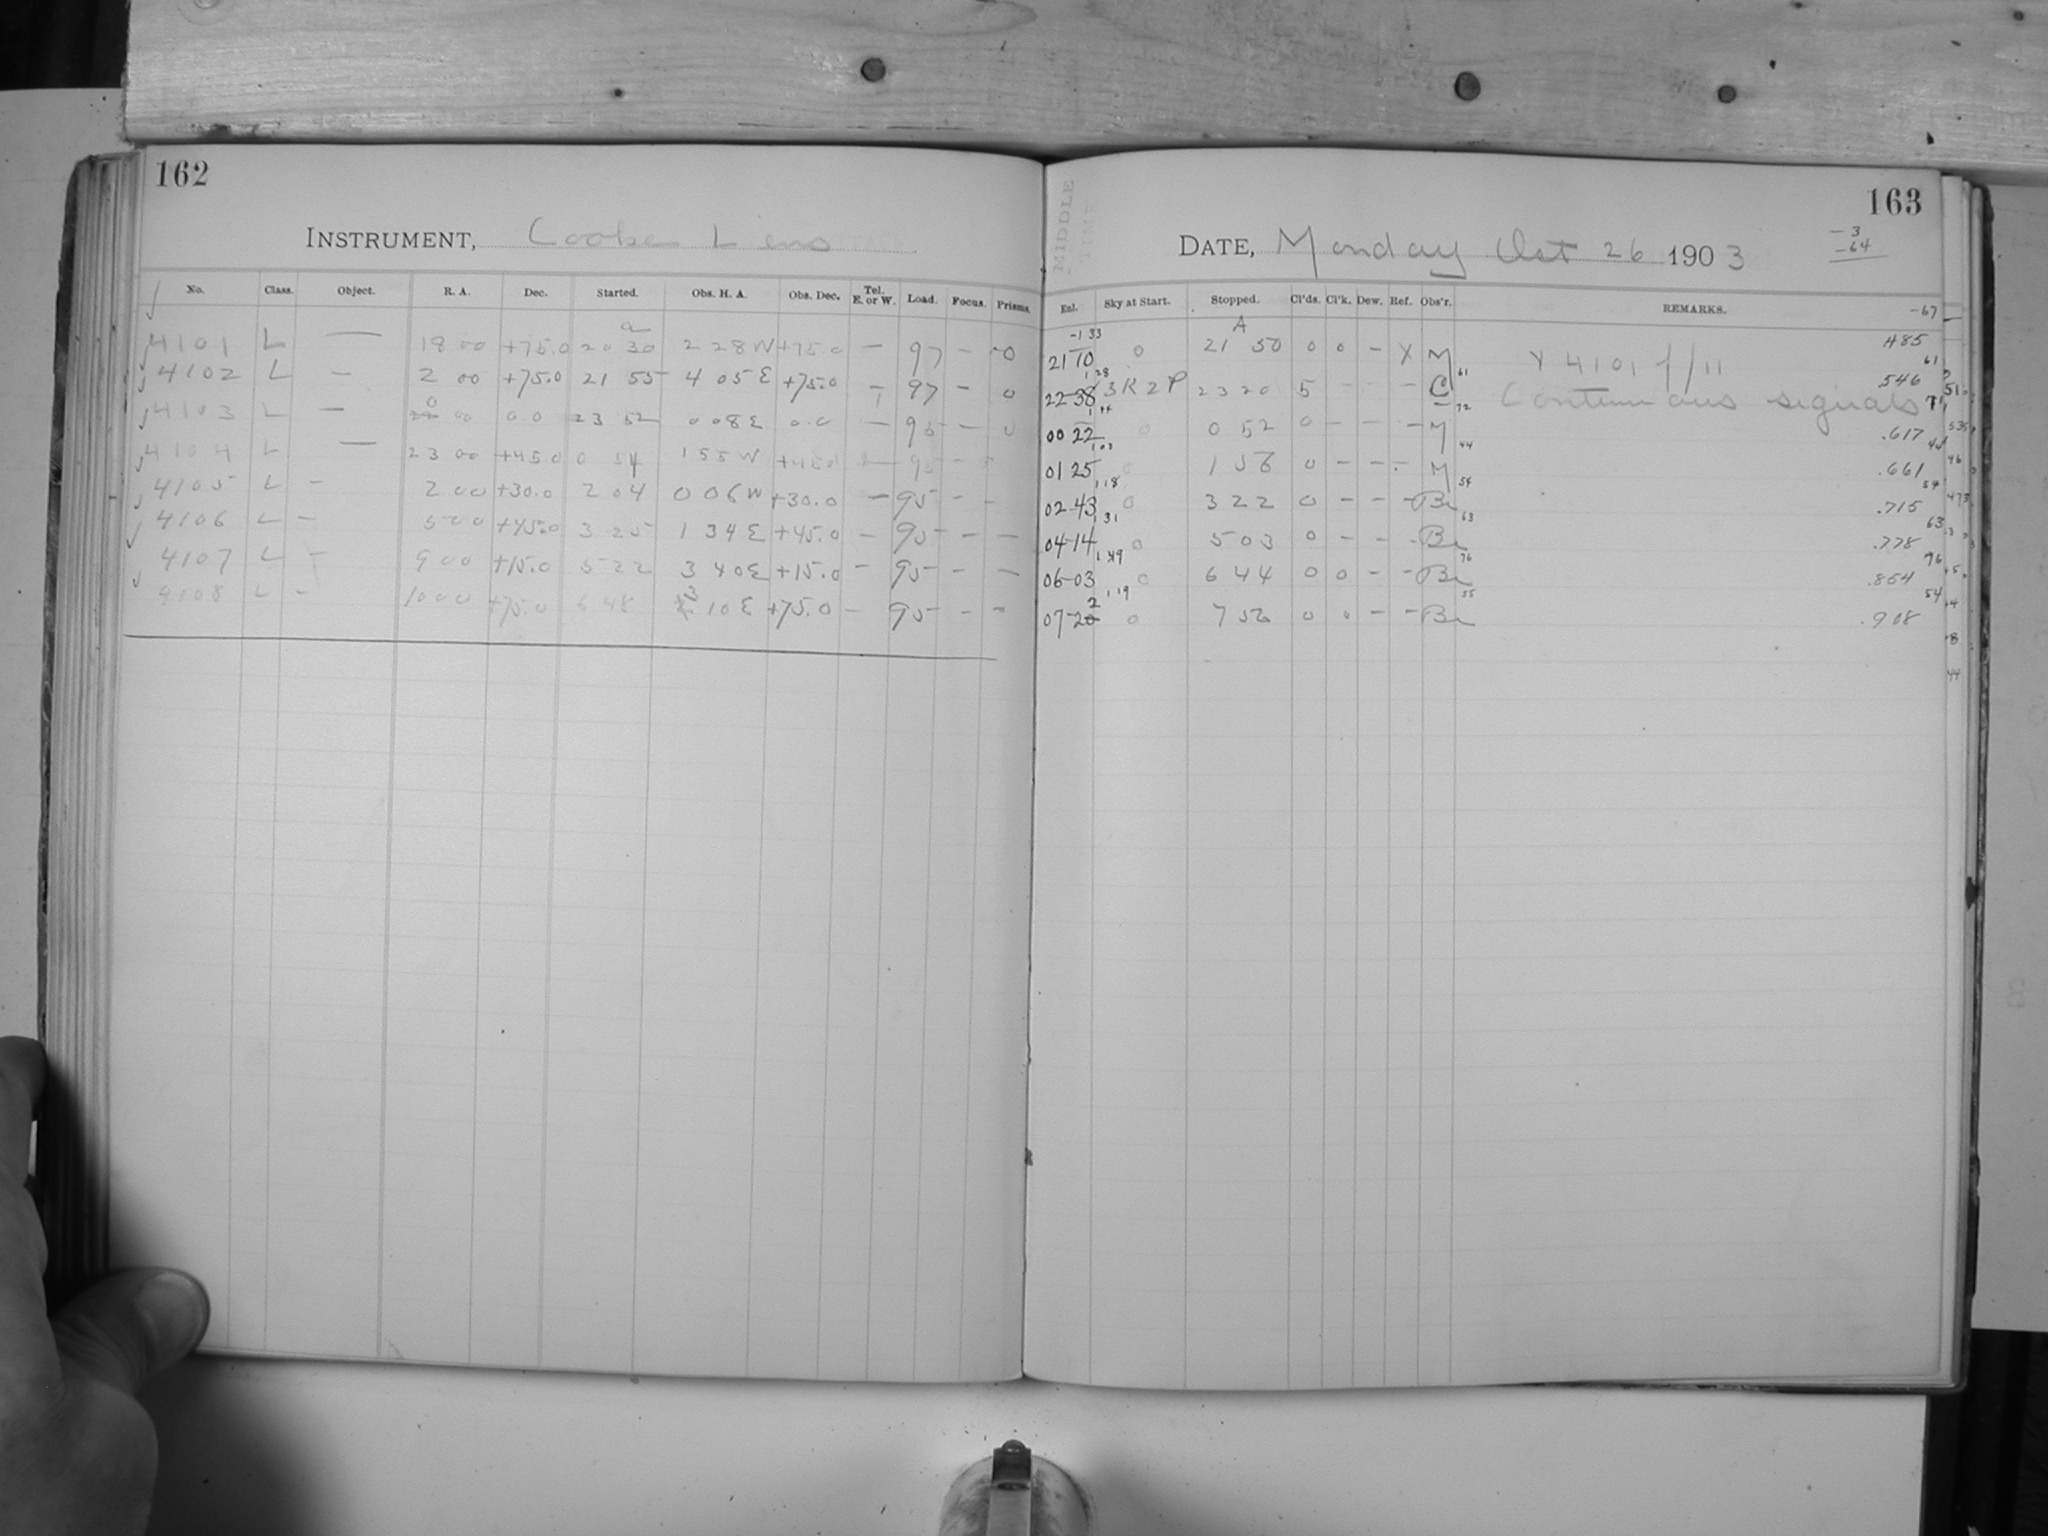 162
INSTRUMENT, Cooke Lens
No. Class. Object. R. A. Dec. Started. Obs. H. A. Obs. Dec. Tel. E. or W. Load. Focus. Prisms.
4101 L — 18 00 +75.0 20 30 2 28 W +75.0 — 97 — 0
4102 L — 2 00 +75.0 21 55 4 05 E +75.0 — 97 — 0
4103 L — 0 00 0.0 23 52 0 08 E 0.0 — 95 — 0
4104 L — 23 00 +45.0 0 54 1 55 W +45.0 — 95 — —
4105 L — 2 00 +30.0 2 04 0 06 W +30.0 — 95 — —
4106 L — 5 00 +45.0 3 25 1 34 E +45.0 — 95 — —
4107 L — 9 00 +15.0 5 22 3 40 E +15.0 — 95 — —
9108 L — 10 00 +75.0 6 48 3 10 E +75.0 — 95 — —
163
DATE, Monday Oct 26 1903
-3
-64
-67
MIDDLE TIME
Enl. Sky at Start. Stopped. Cl'ds. Cl'k. Dew. Ref. Obs'r. REMARKS.
-1 33 A
21 10 0 21 50 0 0 — X M X 4101 f/11 .485
1 28 61 61
22-38 3K2P 23 20 5 — — — C Continuous signals 546
1 44 72 71
00 22 0 0 52 0 — — — M .617
1 03 44 44
01 25 0 1 56 0 — — — M .661
1 18 54 54
02-43 0 3 22 0 — — — Be .715
1 31 63 63
04-14 0 5 03 0 — — — Be .778
1 49 76 76
06-03 0 6 44 0 0 — — Be .854
1 19 55 54
07-22 0 7 56 0 0 — — Be .908